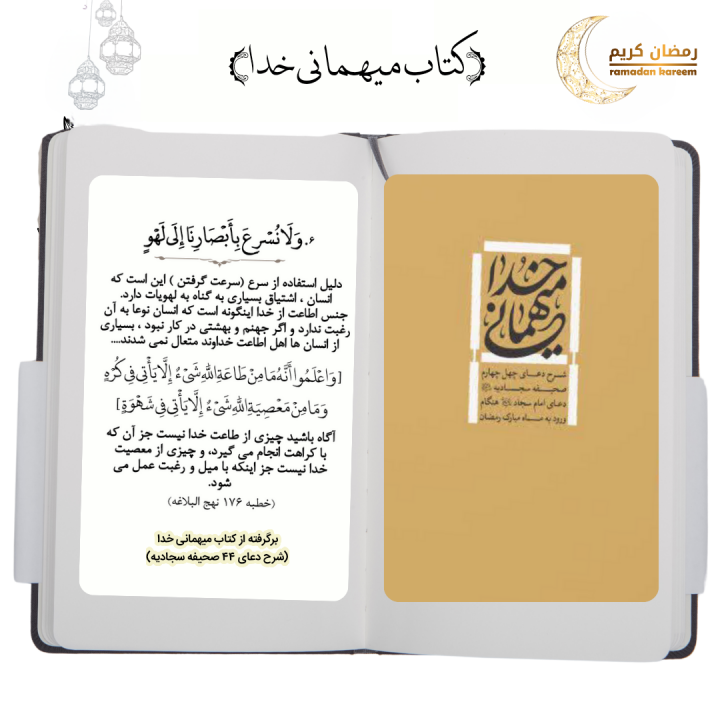 ﴿کتاب میهمانی خدا﴾
رمضان کریم
ramadan kareem
۶. وَلَا نُسْرِعَ بِأَبْصَارِنَا إِلَى لَهْوٍ
دلیل استفاده از سرع (سرعت گرفتن ) این است که
انسان ، اشتیاق بسیاری به گناه به لهویات دارد.
جنس اطاعت از خدا اینگونه است که انسان نوعا به آن
رغبت ندارد و اگر جهنم و بهشتی در کار نبود ، بسیاری
از انسان ها اهل اطاعت خداوند متعال نمی شدند....
[وَاعْلَمُوا أَنَّهُ مَا مِنْ طَاعَةِ اللهِ شَیْءٌ إِلَّا يَأْتِي فِي كُرْهٍ
وَمَا مِنْ مَعْصِيَةِ اللهِ شَیْءٌ إِلَّا يَأْتِي فِي شَهْوَةٍ]
آگاه باشید چیزی از طاعت خدا نیست جز آن که
با کراهت انجام می گیرد، و چیزی از معصیت
خدا نیست جز اینکه با میل و رغبت عمل می
شود.
(خطبه ۱۷۶ نهج البلاغه)
برگرفته از کتاب میهمانی خدا
(شرح دعای ۴۴ صحیفه سجادیه)
میهمانی خدا
شرح دعای چهل چهارم
صحیفه سجادیه
دعای امام سجاد هنگام
ورود به ماه مبارک رمضان